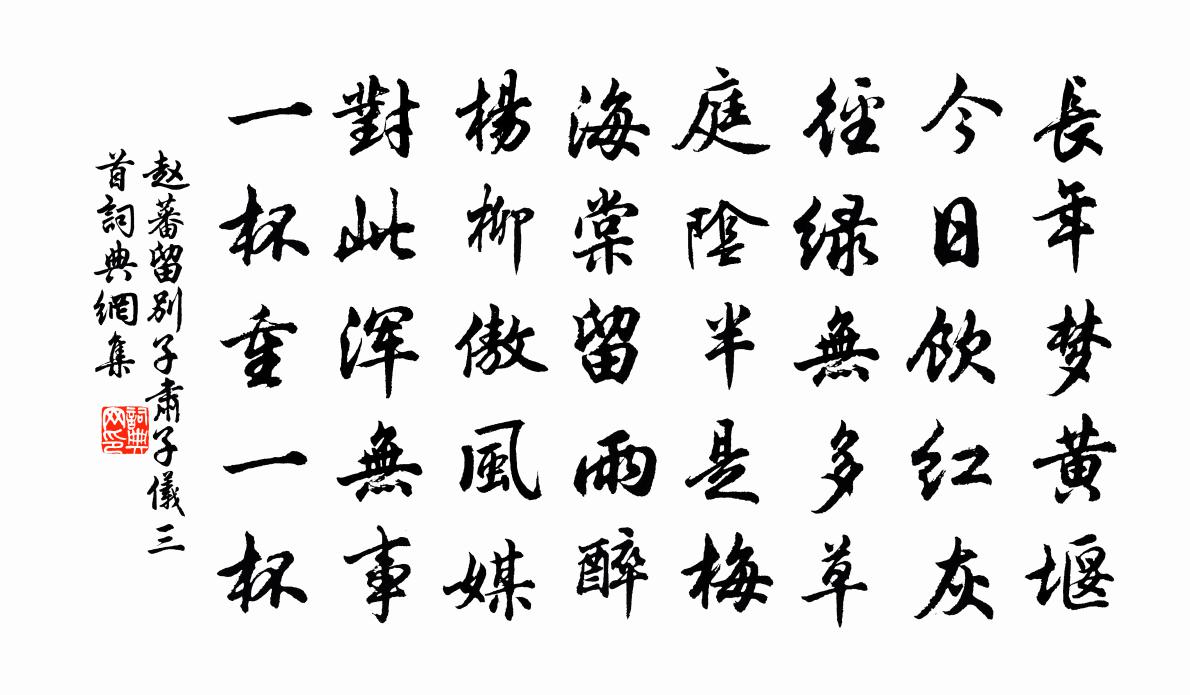 長年梦黄堰
今日饮红灰
徑緑無多草
庭陰半是梅
海棠留雨醉
楊柳傲風媒
對此浑無事
一杯重一杯
赵蕃留别子肃子儀三
首詞典網集
詞典网印